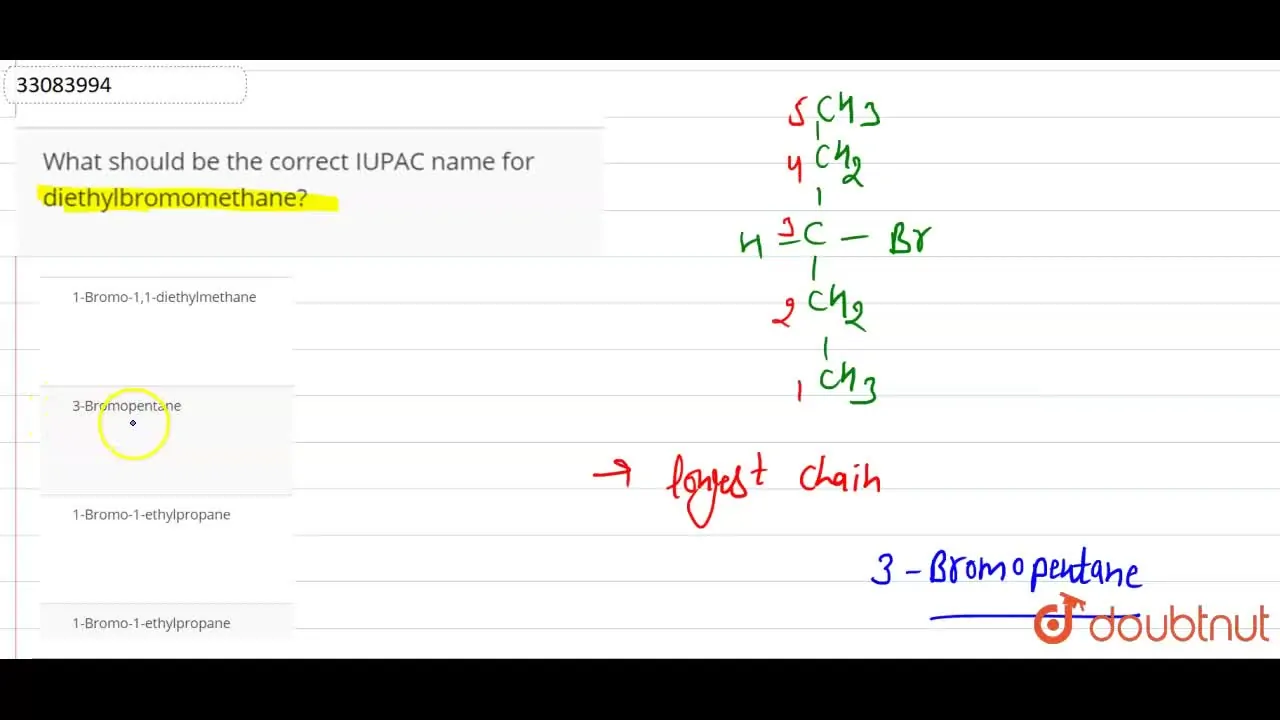 33083994
What should be the correct IUPAC name for
diethylbromomethane?
1-Bromo-1,1-diethylmethane
3-Bromopentane
1-Bromo-1-ethylpropane
1-Bromo-1-ethylpropane
5 CH3
4 CH2
H - 3 C - Br
2 CH2
1 CH3
→ longest chain
3-Bromopentane
doubtnut